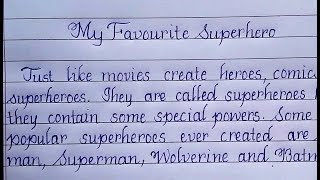 My Favourite Superhero
Just like movies create heroes, comic
superheroes. They are called superheroes
they contain some special powers. Some
popular superheroes ever created are
man, Superman, Wolverine and Batm